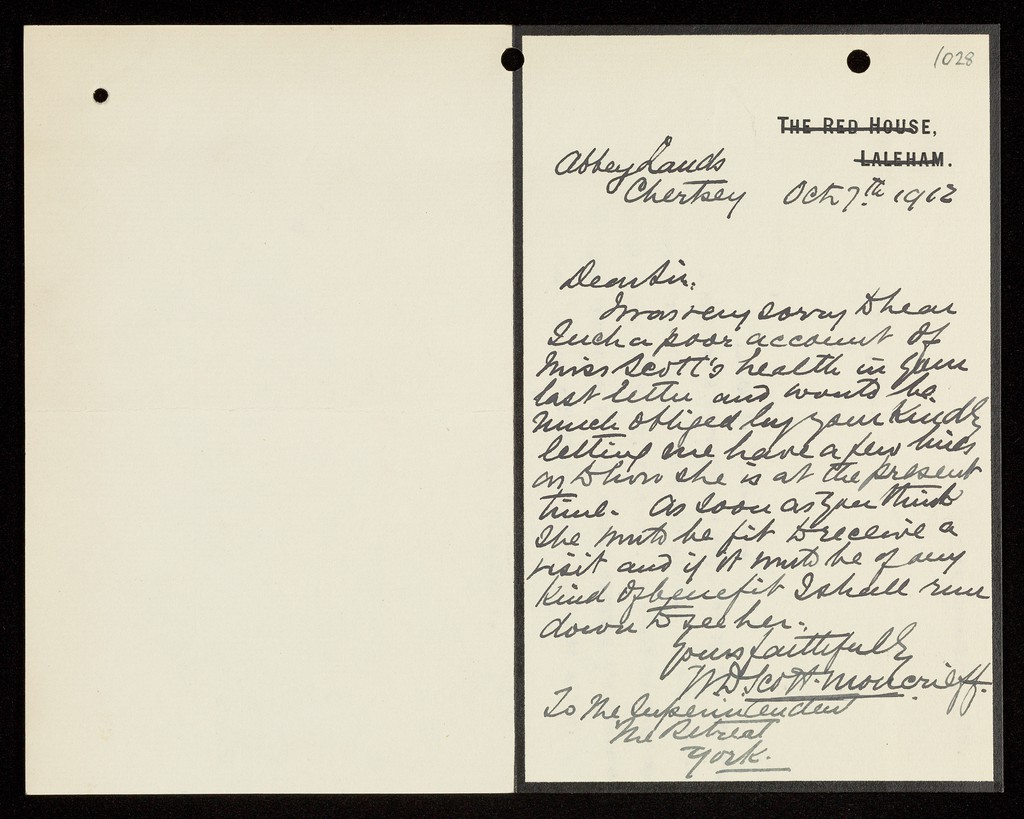 1028
THE RED HOUSE,
LALEHAM.
Abbey Lands
Chertsey Oct 7th 1912
Dear Sir,
I was very sorry to hear
such a poor account of
Miss Scott's health in your
last letter and would be
much obliged by your kindly
letting me have a few lines
as to how she is at the present
time. As soon as you think
she would be fit to receive a
visit and if it would be of any
kind of benefit I shall run
down to see her.
Yours faithfully
W.D. Scott-Moncrieff.
To The Superintendent
The Retreat
York.